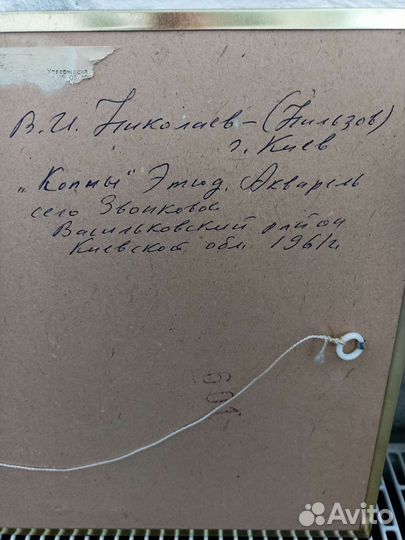 Утверждена
В. И. Николаев - (Нильзов)
г. Киев
„Копны" Этюд. Акварель
село Звонковое
Васильковский район
Киевской обл. 1961г
601
Avito